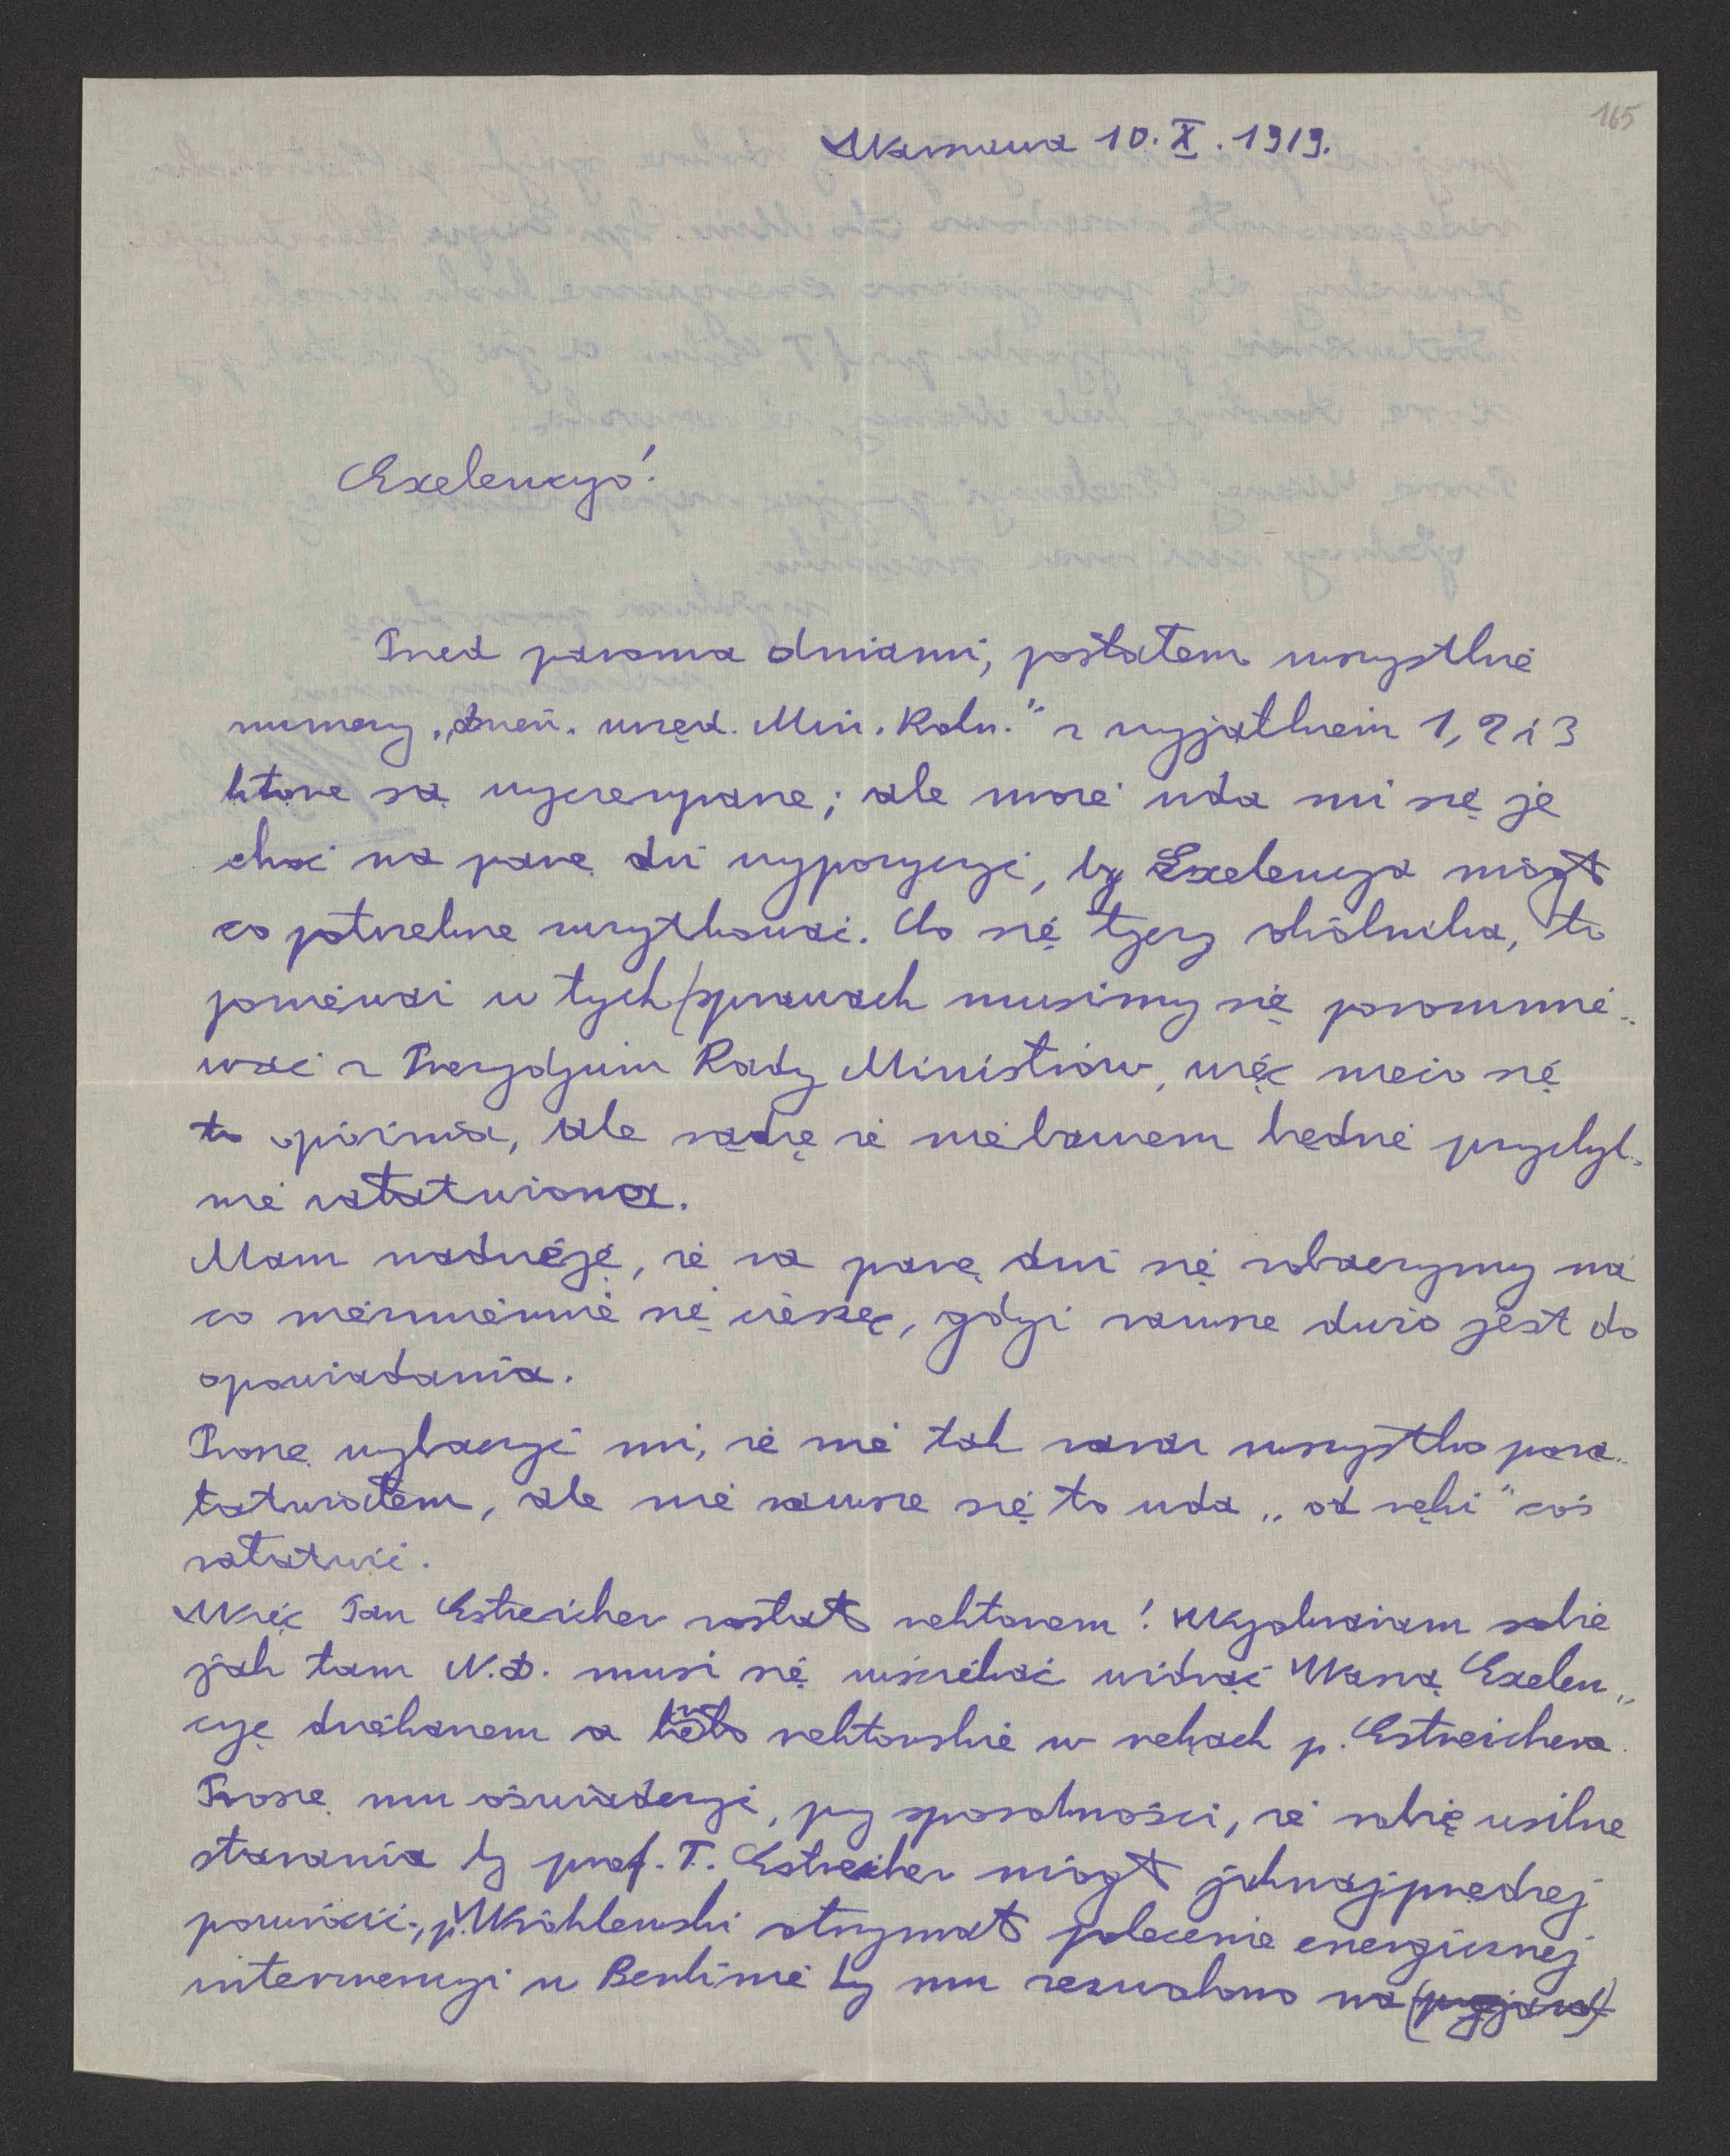 165
Warszawa 10.X.1919.
Exelencyo!
Przed paroma dniami, posłałem wszystkie
numery „dzien. urzęd. Min. Roln." z wyjątkiem 1, 2 i 3
które są wyczerpane; ale może uda mi się je
choć na parę dni wypożyczyć, by Exelencya mógł
co potrzebne zużytkować. Co się tyczy okólnika, to
ponieważ w tych sprawach musimy się porozumie„
wać z Prezydjum Rady Ministrów, więc nieco się
to opóźnia, ale sądzę że niebawem będzie przychyl„
nie załatwiona.
Mam nadzieję, że za parę dni się zobaczymy na
co niezmiernie się cieszę, gdyż zawsze dużo jest do
opowiadania.
Proszę wybaczyć mi, że nie tak zaraz wszystko poza„
łatwiałem, ale nie zawsze się to uda „od ręki" coś
załatwić.
Więc Pan Estreicher został rektorem! Wyobrażam sobie
jak tam N.D. musi się wściekać widząc Waszą Exelen„
cyę dziekanem a berło rektorskie w rękach p. Estreichera.
Proszę mu oświadczyć, przy sposobności, że robię usilne
starania by prof. T. Estreicher mógł jaknajprędzej
powrócić, p. Wróblewski otrzymał polecenie energicznej
interwencyi w Berlinie by mu zezwolono na (przyjazd)